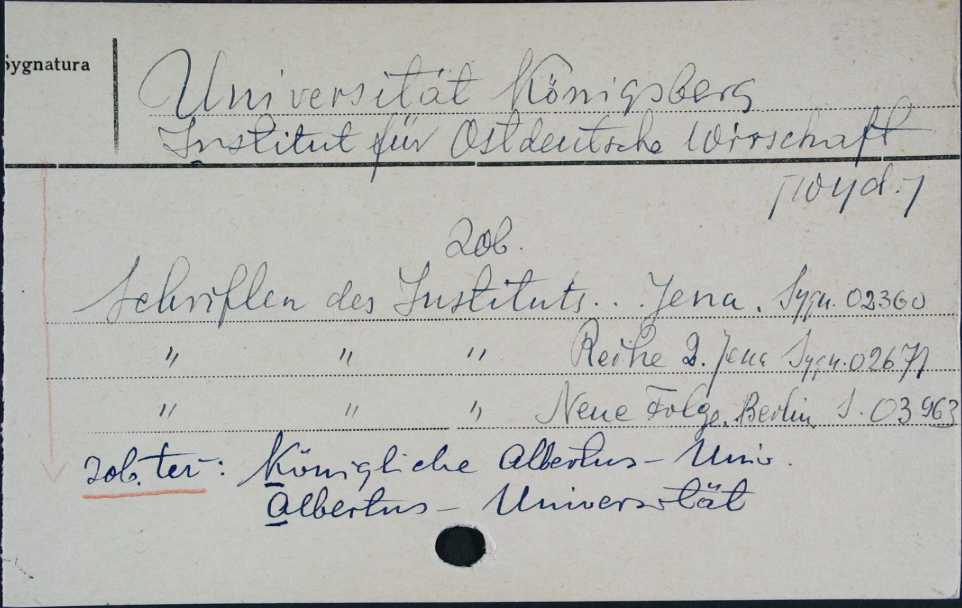 Sygnatura
Universität Königsberg
Institut für Ostdeutsche Wirschaft
[wyd.]
zob.
Schriften des Instituts... Jena. Sygn. 02360
" " " Reihe 2. Jena Sygn. 02671
" " " Neue Folge. Berlin S. 03963
zob. też: Königliche Albertus-Univ.
Albertus-Universität